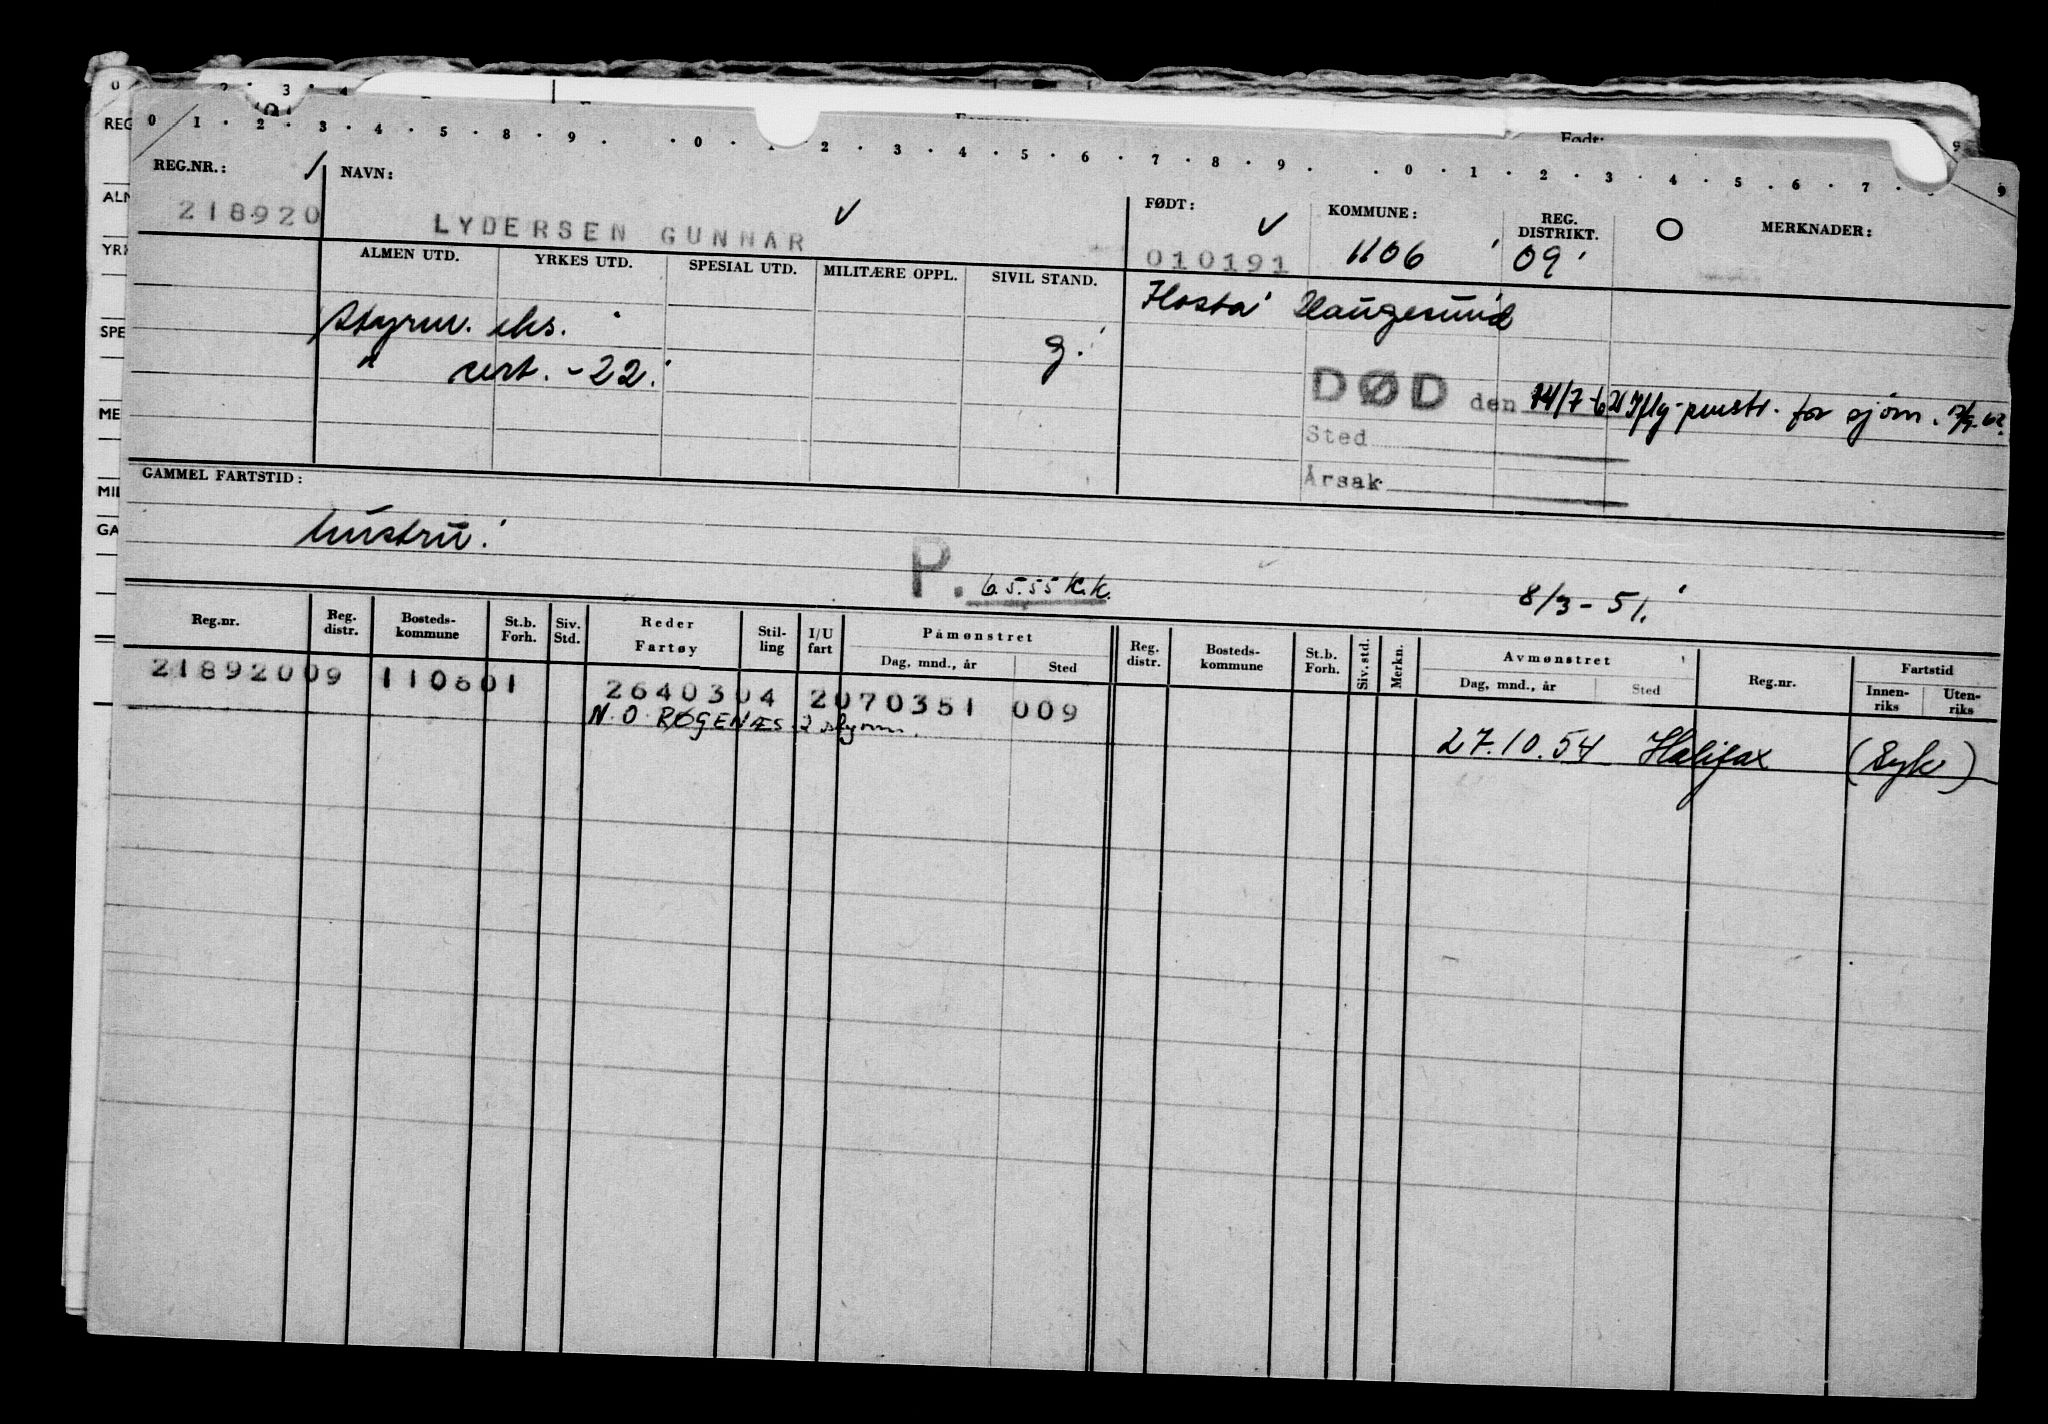 0 1 2 3 4 5 8 9 0 2 3 4 5 6 7 8 9 0 1 2 3 4 5 6 7 9
REG.NR.: NAVN: FØDT: KOMMUNE: REG. DISTRIKT. MERKNADER:
218920 LYDERSEN GUNNAR 010191 1106 09
ALMEN UTD. YRKES UTD. SPESIAL UTD. MILITÆRE OPPL. SIVIL STAND.
Haugesund
Styrm. eks. g.
" cert. -22.
DØD den 14/7-62 Iflg. penstr. for sjøm.
Sted
Årsak
GAMMEL FARTSTID:
P. 6.5.55 K.K.
8/3-51.
Reg.nr. Reg. distr. Bosteds-kommune St.b. Forh. Siv. Std. Reder Fartøy Stil-ling I/U fart Påmønstret Dag, mnd., år Sted Reg. distr. Bosteds-kommune St.b. Forh. Siv. std. Merkn. Avmønstret Dag, mnd., år Sted Reg.nr. Fartstid Innen-riks Uten-riks
218920 09 1106 01 2640304 2070351 009
N.O. ROGENÆS 2 styrm.
27.10.54 Halifax (Syk)